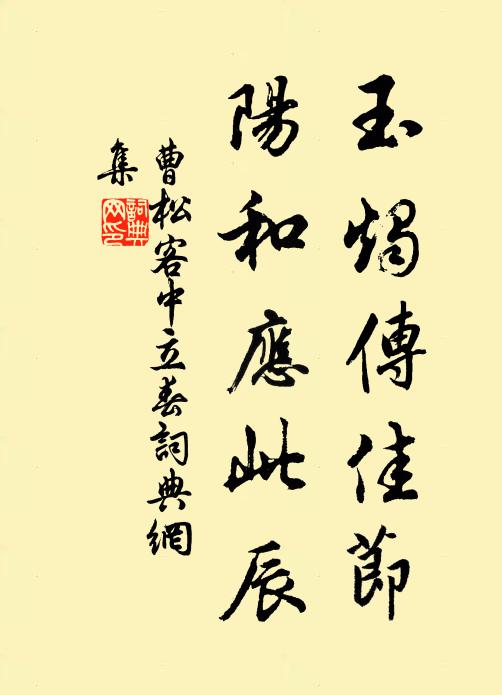 玉燭傳佳節
陽和應此辰
曹松客中立春詞典網
集
詞典
网印